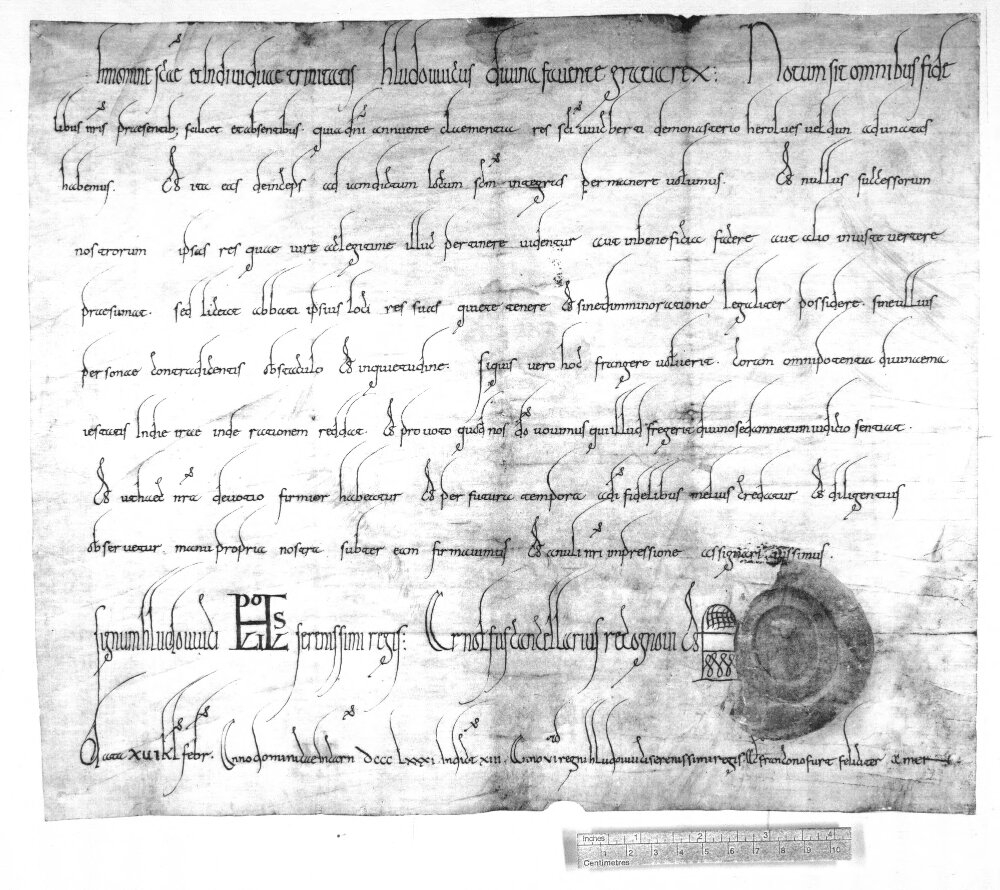 In nomine scae et individuae trinitatis hludouuicus divina favente gratia rex: Notum sit omnibus fide
libus nris praesentib; scilicet et absentibus. quia dni annuente clementia res sci uuicberti de monasterio herolues ueldun adunatas
habemus. & ita eas deinceps ad iam dictum locum scm integras permanere volumus. & nullus successorum
nostrorum ipsas res quae iure ac legitime illuc pertinere videntur aut in beneficia facere aut alio iniuste vertere
praesumat. sed liceat abbati ipsius loci res suas quiete tenere & sine diminoratione legaliter possidere. sine ullius
personae contradicentis obstaculo & inquietudine: Siquis vero hoc frangere voluerit. coram omnipotentia divinae ma
iestatis In die irae inde rationem reddat. & pro voto quod nos do vovimus qui illud fregerit divino se damnatum iudicio sentiat.
& ut haec nra devotio firmior habeatur & per futura tempora a di fidelibus melius credatur & diligentius
observetur. manu propria nostra subter eam firmavimus & anuli nri impressione assignari iussimus.
signum hludouuici serenissimi regis: Ernolfus cancellarius recognovi &
Data XVI kl febr. Anno dominicae incarn dccc lxxxi Indict XIII. Anno VI regni hludouuici serenissimi regis. Actum francono furt feliciter amen
Inches 1 2 3 4
Centimetres 1 2 3 4 5 6 7 8 9 10